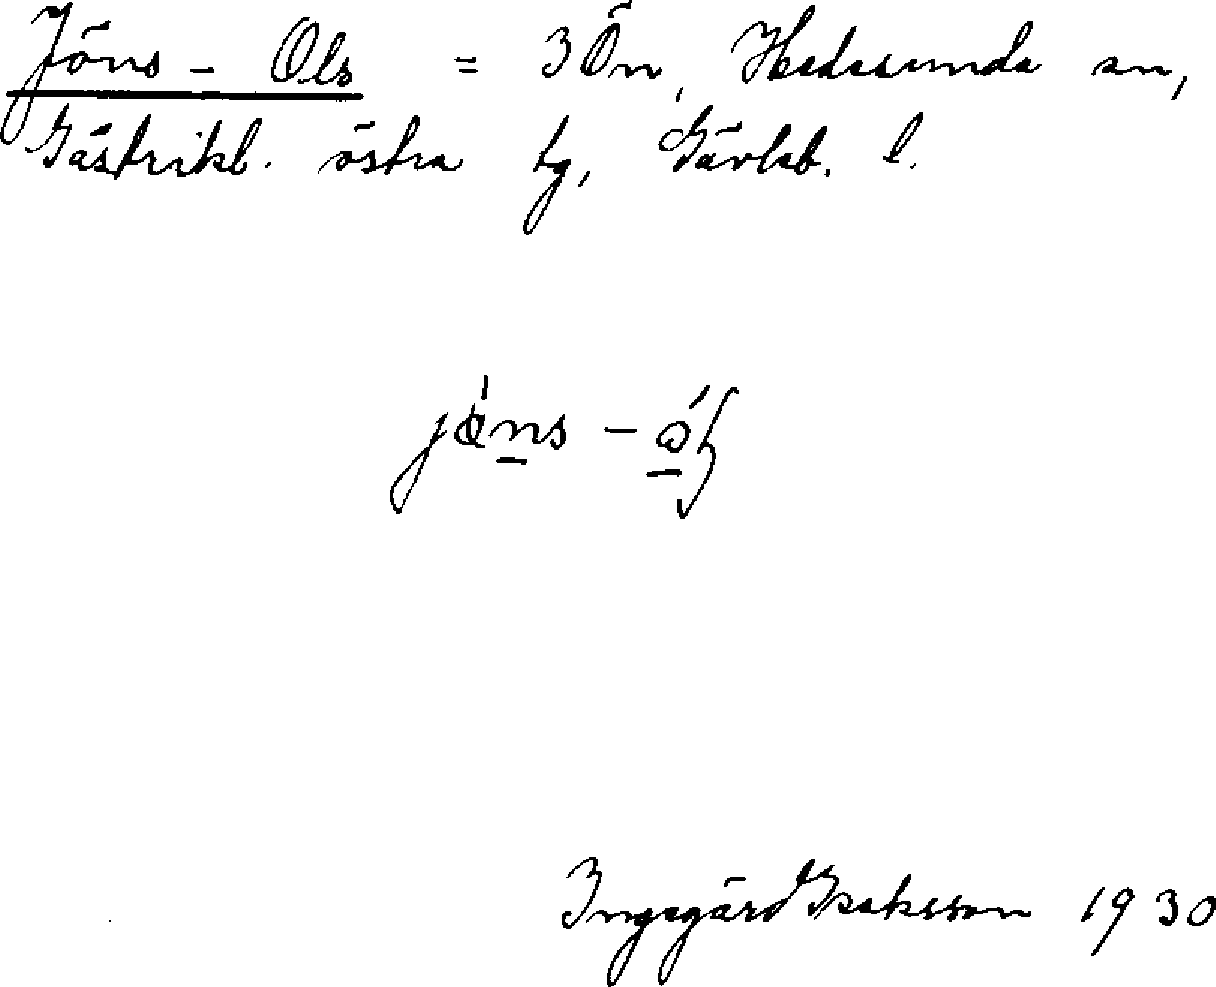 Jöns - Ols = 3 Ön, Hedesunda sn,
Gästrikl. östra tg, Gävleb. l.
jöns -
Ingegärd Isaksson 1930